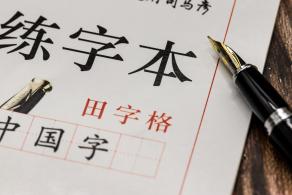 练字本
田字格
中国字